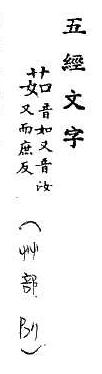 五經文字
茹音如又音汝
又而庶反
(艸部)